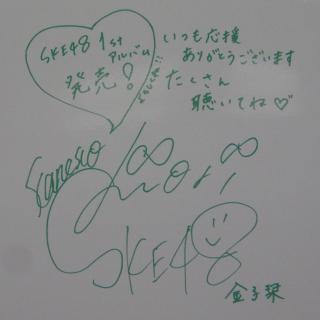 SKE48 1st
アルバム
発売!
よろしくね!!
いつも応援
ありがとうございます
たくさん
聴いてね♡
Kaneko
Shiori
SKE48
金子栞